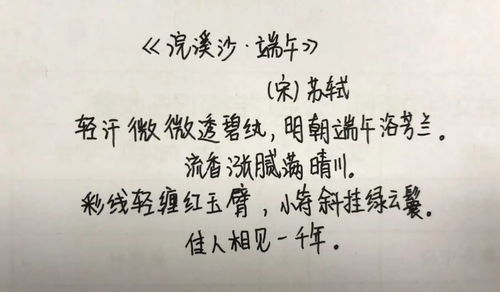 《浣溪沙·端午》
(宋)苏轼
轻汗微微透碧纨,明朝端午洛芳兰。
流香涨腻满晴川。
彩线轻缠红玉臂,小符斜挂绿云鬟。
佳人相见一千年。